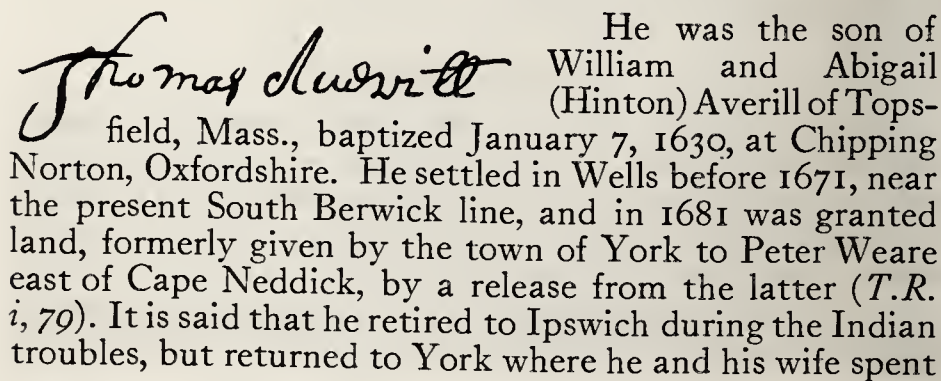 Thomas Averill
He was the son of
William and Abigail
(Hinton) Averill of Tops-
field, Mass., baptized January 7, 1630, at Chipping
Norton, Oxfordshire. He settled in Wells before 1671, near
the present South Berwick line, and in 1681 was granted
land, formerly given by the town of York to Peter Weare
east of Cape Neddick, by a release from the latter (T.R.
i, 79). It is said that he retired to Ipswich during the Indian
troubles, but returned to York where he and his wife spent